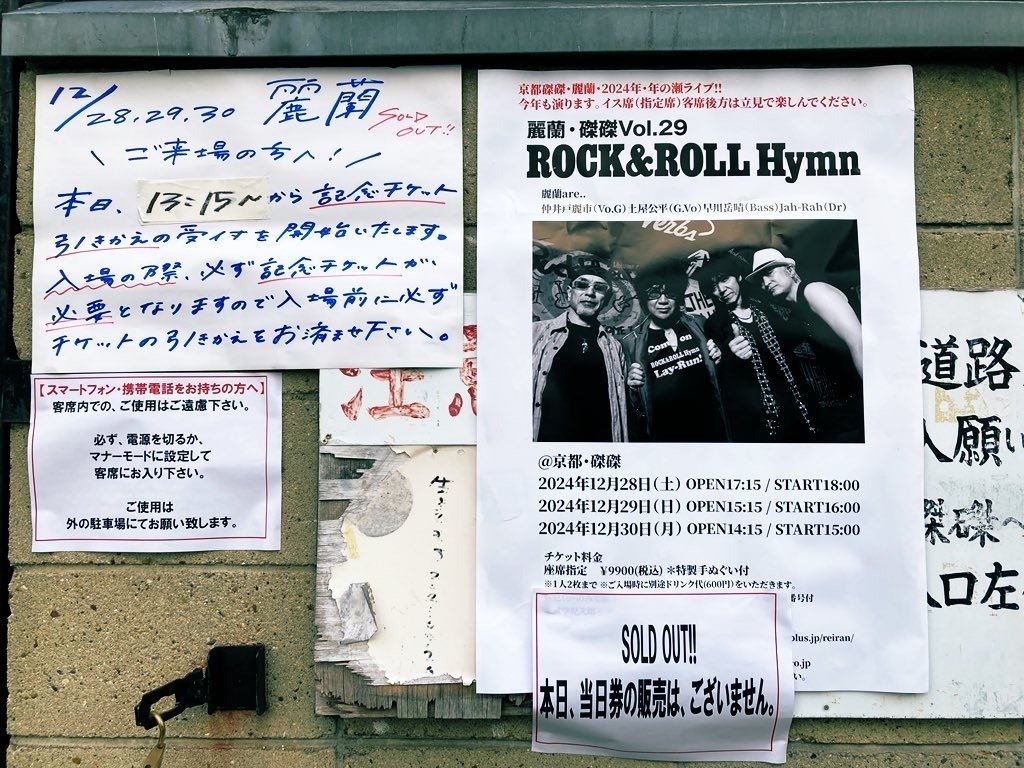 12/28.29.30 麗蘭 SOLD OUT!!
\ ご来場の方へ! /
本日、13:15~から記念チケット
引きかえの受付を開始いたします。
入場の際、必ず記念チケットが、
必要となりますので入場前に必ず
チケットの引きかえをお済ませ下さい。
【スマートフォン・携帯電話をお持ちの方へ】
客席内での、ご使用はご遠慮下さい。
必ず、電源を切るか、
マナーモードに設定して
客席にお入り下さい。
ご使用は
外の駐車場にてお願い致します。
注意
京都磔磔・麗蘭・2024年・年の瀬ライブ!!
今年も演ります。イス席(指定席)客席後方は立見で楽しんでください。
麗蘭・磔磔Vol.29
ROCK&ROLL Hymn
麗蘭are..
仲井戸麗市(Vo.G)土屋公平(G.Vo)早川岳晴(Bass)Jah-Rah(Dr)
Verbs
THE
Come on
ROCK&ROLL Hymn
Lay-Run!
@京都・磔磔
2024年12月28日(土) OPEN17:15 / START18:00
2024年12月29日(日) OPEN15:15 / START16:00
2024年12月30日(月) OPEN14:15 / START15:00
チケット料金
座席指定 ¥9900(税込) *特製手ぬぐい付
※1人2枚まで ※ご入場時に別途ドリンク代(600円)をいただきます。
番号付
plus.jp/reiran/
o.jp
い。
SOLD OUT!!
本日、当日券の販売は、ございません。
道路
入願い
磔磔へ
入口左